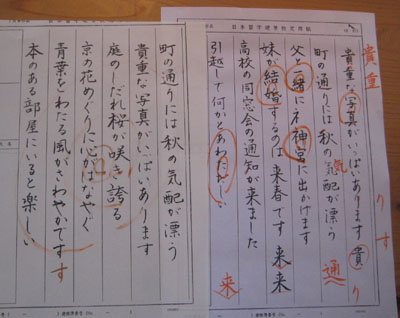 日本習字硬毛検定用紙
貴重
貴重な写真がいっぱいあります 貴り
りす
町の通りには秋の気配が漂う 通
気
父と一緒に不神宮に出かけます
妹が結婚するのは来春です 来来
高校の同窓会の通知が来ました
来
引越して何かとあわただしい
町の通りには秋の気配が漂う
貴重な写真がいっぱいあります
庭のしだれ桜が咲き誇る
京の花めぐりに心がはなやぐ
青葉をわたる風がさわやかです す
本のある部屋にいると楽しい